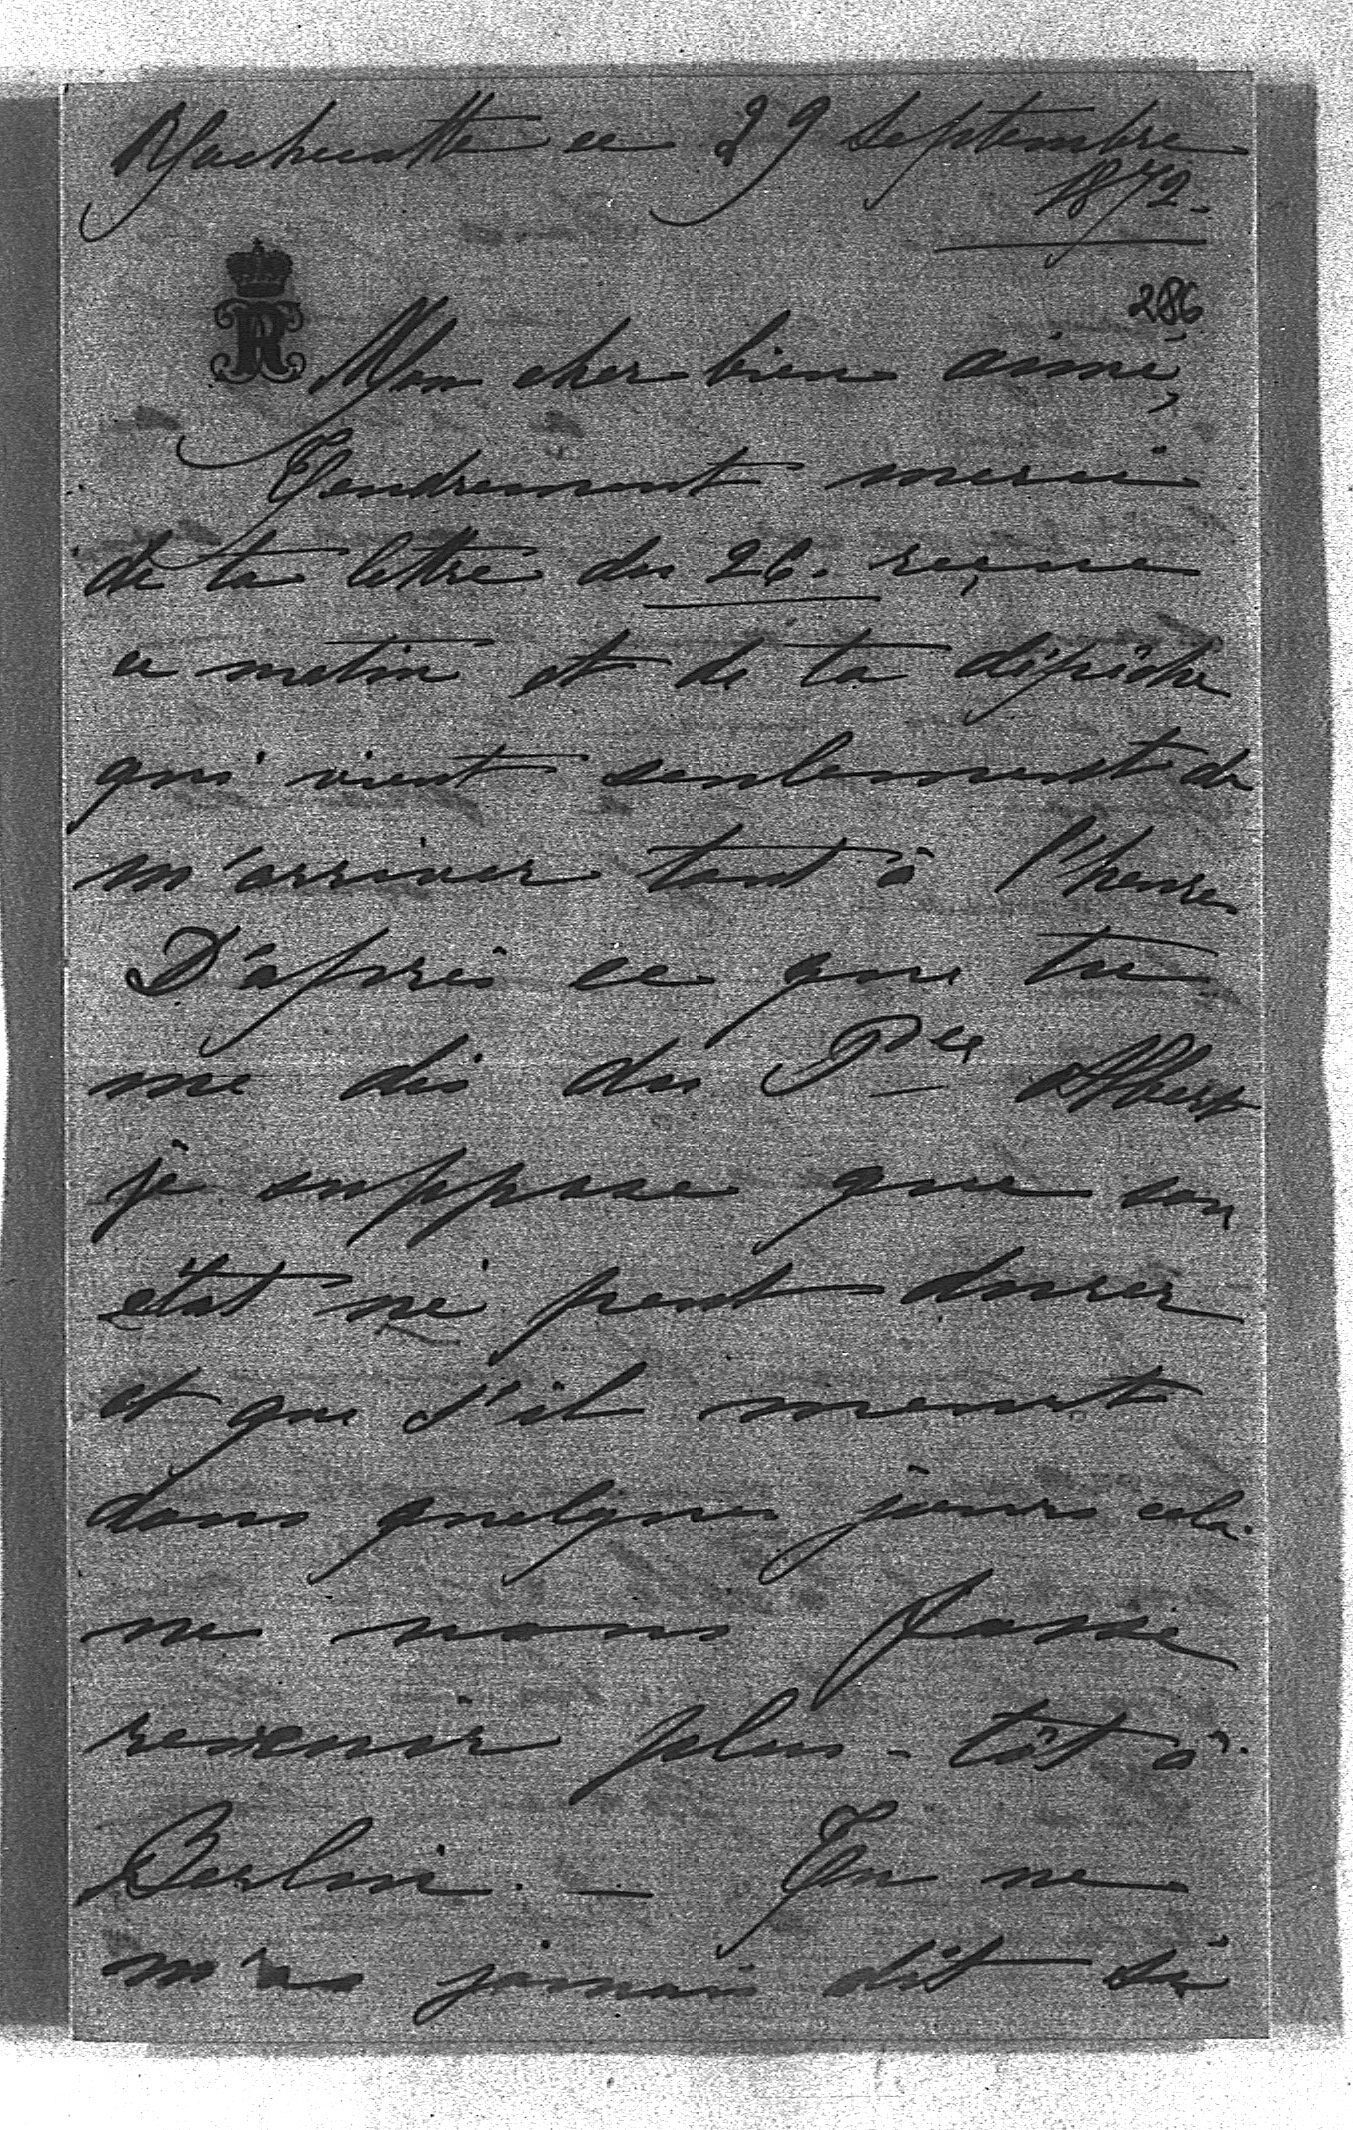 ce 29 septembre
1872.
286
R
Mon cher bien aimé,
Tendrement merci
de ta lettre du 26. reçue
ce matin et de ta dépêche
qui vient seulement de
m'arriver tout à l'heure
D'après ce que tu
me dis du Pce Albert
je suppose que son
état ne peut durer
et que s'il meurt
dans quelques jours cela
ne nous fasse
revenir plus-tôt à
Berlin. — Tu ne
m'as jamais dit si